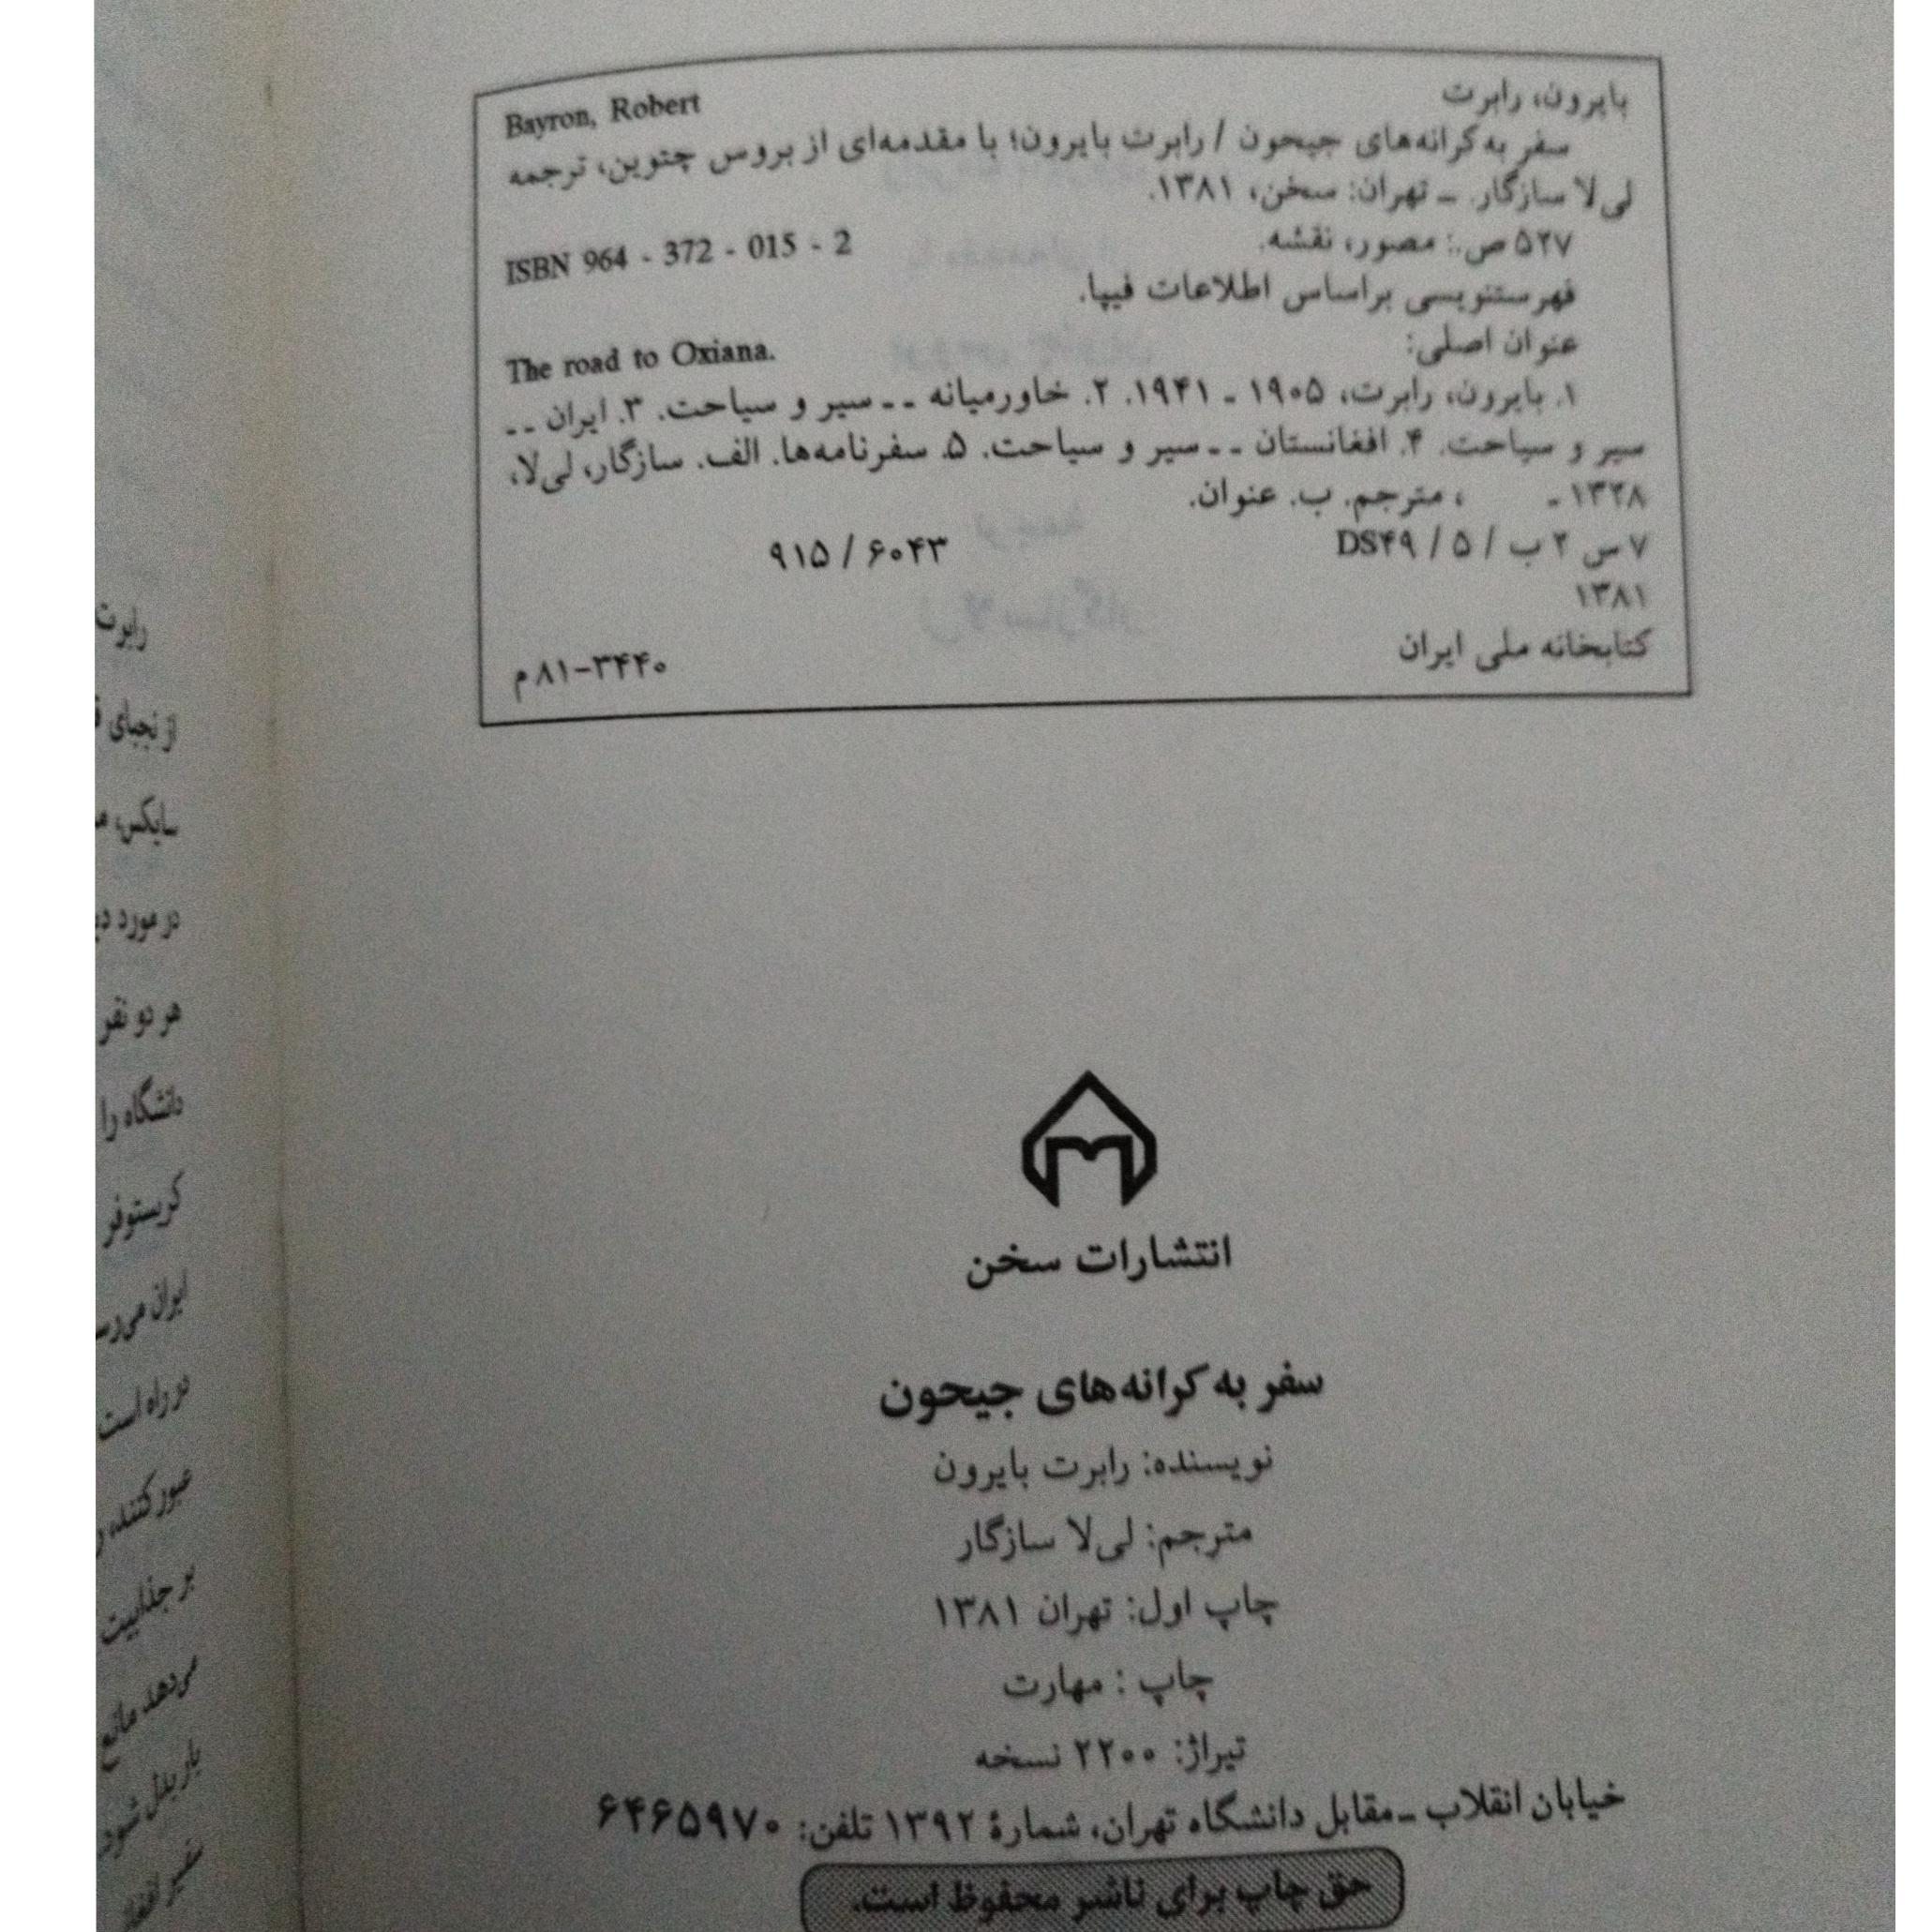 بایرون، رابرت
Bayron, Robert
سفر به کرانه‌های جیحون / رابرت بایرون؛ با مقدمه‌ای از بروس چتوین، ترجمه
لی‌لا سازگار. ـ تهران: سخن، ۱۳۸۱.
۵۲۷ ص.: مصور، نقشه.
ISBN 964 - 372 - 015 - 2
فهرستنویسی براساس اطلاعات فیپا.
عنوان اصلی:
The road to Oxiana.
۱. بایرون، رابرت، ۱۹۰۵ ـ ۱۹۴۱. ۲. خاورمیانه ـ ـ سیر و سیاحت. ۳. ایران ـ ـ
سیر و سیاحت. ۴. افغانستان ـ ـ سیر و سیاحت. ۵. سفرنامه‌ها. الف. سازگار، لی‌لا،
۱۳۲۸ ـ ، مترجم. ب. عنوان.
۷ س ۲ ب / ۵ / DS۴۹
۹۱۵ / ۶۰۴۳
۱۳۸۱
کتابخانه ملی ایران
۸۱-۳۴۴۰ م
انتشارات سخن
سفر به کرانه‌های جیحون
نویسنده: رابرت بایرون
مترجم: لی‌لا سازگار
چاپ اول: تهران ۱۳۸۱
چاپ : مهارت
تیراژ: ۲۲۰۰ نسخه
خیابان انقلاب ـ مقابل دانشگاه تهران، شمارهٔ ۱۳۹۲ تلفن: ۶۴۶۵۹۷۰
حق چاپ برای ناشر محفوظ است.
رابرت
از نجبای
سایکس،
در مورد
هر دو نفر
دانشگاه را
کریستوفر
ایران
در راه است
عبور کنند،
بر جذابیت
می‌دهد مانع
یار بدل شود
سفیر